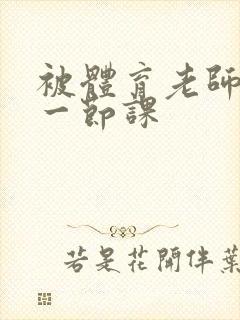 被體育老師
一節課
若是花開伴葉